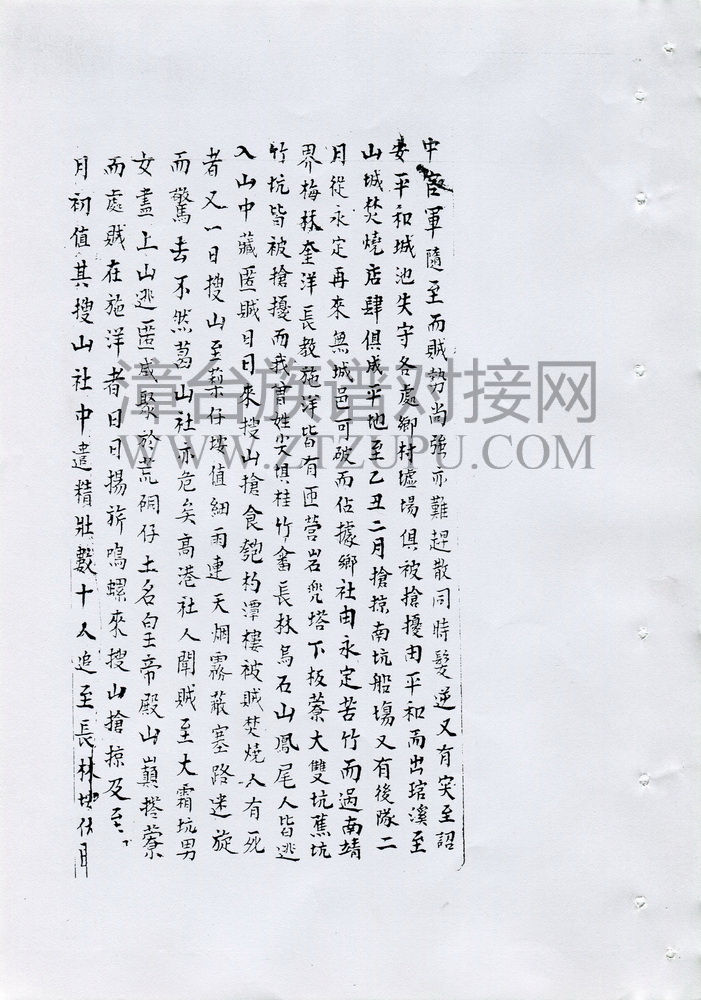 中官軍隨至而賊勢尚強亦難趕散同時髮逆又有突至詔
安平和城池失守各處鄉村墟場俱被搶擾由平和而出琯溪至
山城焚燒店肆俱成平地至乙丑二月搶掠南坑船場又有後隊二
月從永定再來無城邑可破而佔據鄉社由永定苦竹而過南靖
界梅林奎洋長教施洋皆有匪營岩兜塔下板藔大雙坑蕉坑
竹坑皆被搶擾而我曾姓尖俱桂竹畬長林烏石山鳳尾人皆逃
入山中藏匿賊日日來搜山搶食匏杓潭樓被賊焚燒人有死
者又一日搜山至梨仔埁值細雨連天烟霧蔽塞路迷旋
而驚去不然葛山社亦危矣高港社人聞賊至大霜坑男
女盡上山逃匿咸聚於荒硐仔土名白玉帝殿山巔搭藔
而處賊在施洋者日日揚旂鳴螺來搜山搶掠及至
月初值其搜山社中遣精壯數十人追至長林埁仔月
漳台族谱对接网
WWW.ZTZUPU.COM